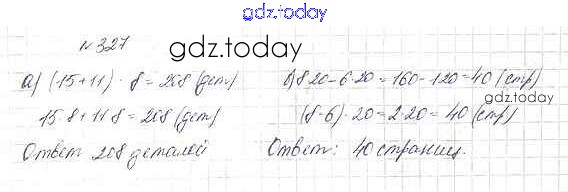 gdz.today
№327
gdz.today
а) (15+11) · 8 = 208 (дет)
15·8+11·8=208 (дет)
Ответ 208 деталей
б) 8·20-6·20=160-120=40 (стр)
gdz.today
(8-6)·20=2·20=40 (стр)
Ответ: 40 страниц.